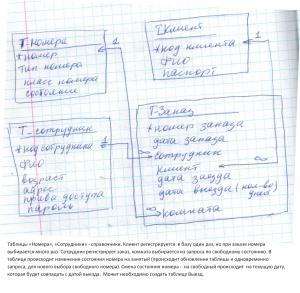 Т-номера
* номер
тип номера
класс номера
состояние
1
Т.Клиент
* код клиента
ФИО
паспорт
1
Т_сотрудник
* код сотрудника
ФИО
возраст
адрес
права доступа
пароль
1
Т-Заказ
* номер заказа
дата заказа
сотрудник
клиент
дата заезда
дата выезда (кол-во дней)
комната
Таблицы «Номера», «Сотрудники» - справочники. Клиент регистрируется в базу один раз, но при заказе номера
выбирается много раз. Сотрудник регистрирует заказ, комната выбирается по запросу на свободному состоянию. В
таблице происходит изменение состояния номера на занятый (происходит обновление таблицы и одновременно
запроса, для нового выбора свободного номера). Смена состояния номера - на свободный происходит на текущую дату,
которая будет совпадать с датой выезда. Может необходимо создать таблицу Выезд.